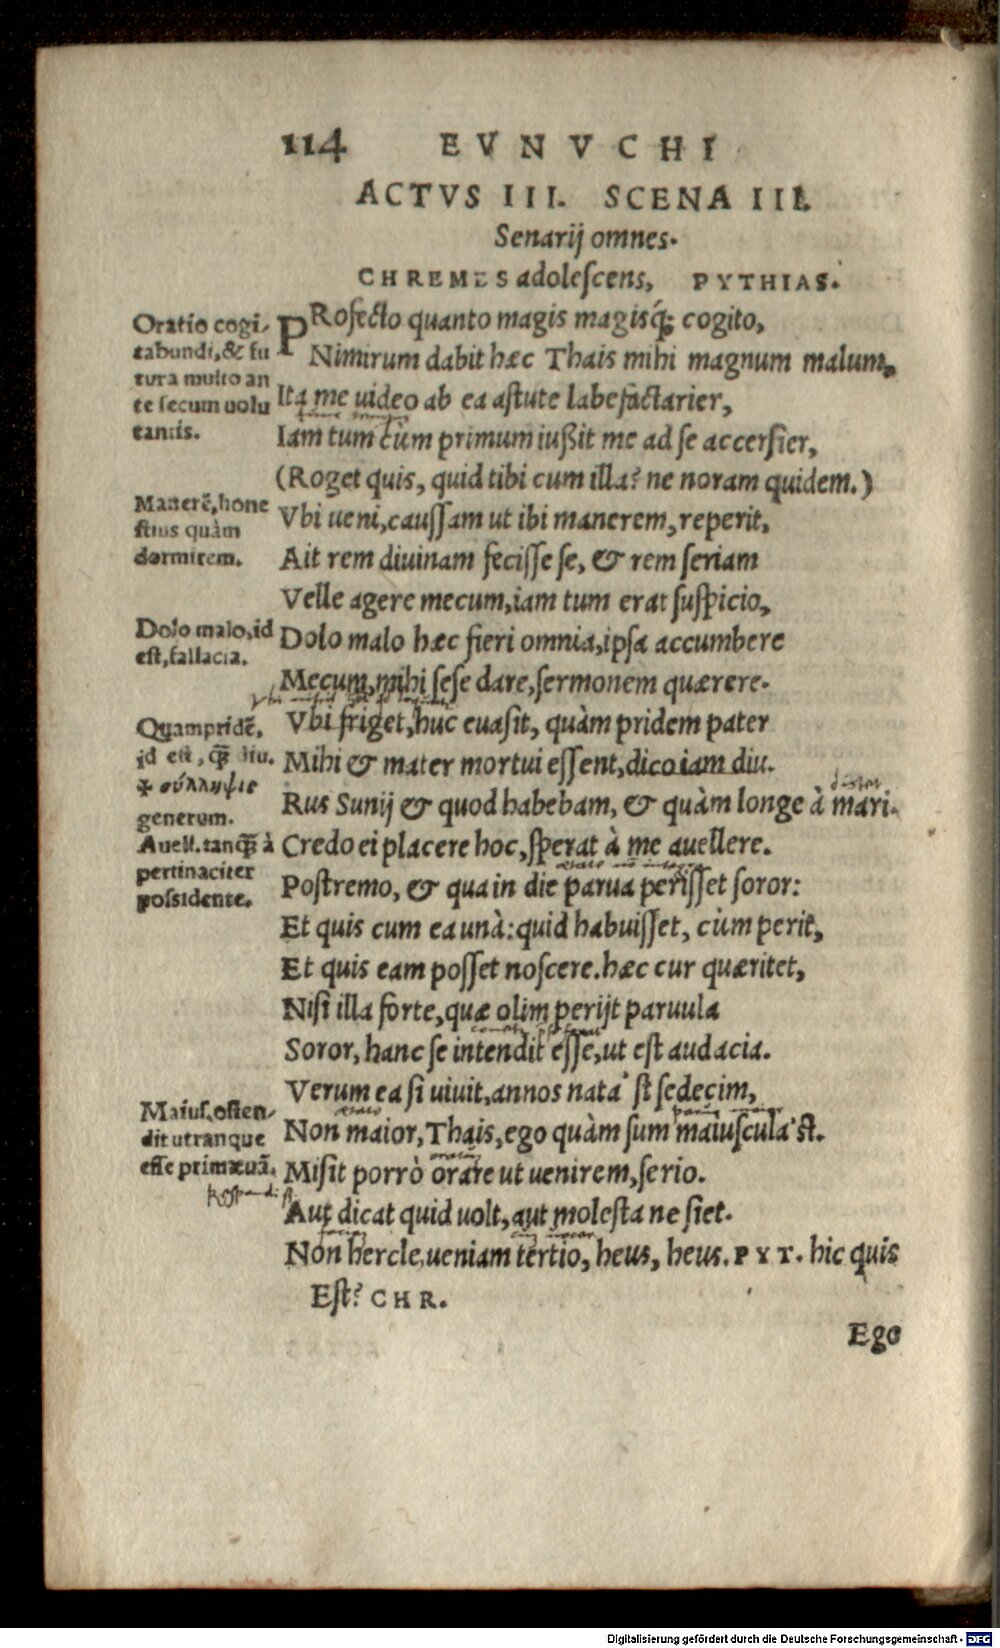 114 EVNVCHI
ACTVS III. SCENA III.
Senarij omnes.
CHREMES adoleſcens, PYTHIAS.
Oratio cogi-
tabundi, & fu
tura multo an
te ſecum uolu
tantis.
PRofecto quanto magis magisq́; cogito,
Nimirum dabit hæc Thais mihi magnum malum,
Ita me uideo ab ea aſtute labefactarier,
Iam tum cùm primum iußit me ad ſe accerſier,
(Roget quis, quid tibi cum illa? ne noram quidem.)
Manerē, hone
ſtius quàm
dormirem.
Vbi ueni, cauſſam ut ibi manerem, reperit,
Ait rem diuinam feciſſe ſe, & rem ſeriam
Velle agere mecum, iam tum erat ſuſpicio,
Dolo malo, id
eſt, fallacia.
Dolo malo hæc fieri omnia, ipſa accumbere
Mecum, mihi ſeſe dare, ſermonem quærere.
Quampridē,
id eſt, q̄ diu.
✠ σύλληψις
generum.
Auell. tanq̄ à
pertinaciter
poſsidente.
Vbi friget, huc euaſit, quàm pridem pater
Mihi & mater mortui eſſent, dico iam diu.
Rus Sunij & quod habebam, & quàm longe à mari.
Credo ei placere hoc, ſperat à me auellere.
Poſtremo, & qua in die parua perijſſet ſoror:
Et quis cum ea unà: quid habuiſſet, cùm perit,
Et quis eam poſſet noſcere. hæc cur quæritet,
Niſi illa forte, quæ olim perijt paruula
Soror, hanc ſe intendit eſſe, ut eſt audacia.
Verum ea ſi uiuit, annos nata' ſt ſedecim,
Maiuſ. oſten-
dit utranque
eſſe primæuā.
Non maior, Thais, ego quàm ſum maiuſcula'ſt.
Miſit porrò orare ut uenirem, ſerio.
Aut dicat quid uolt, aut moleſta ne ſiet.
Non hercle ueniam tertio, heus, heus. PYT. hic quis
Eſt? CHR.
Ego
Digitalisierung gefördert durch die Deutsche Forschungsgemeinschaft - DFG